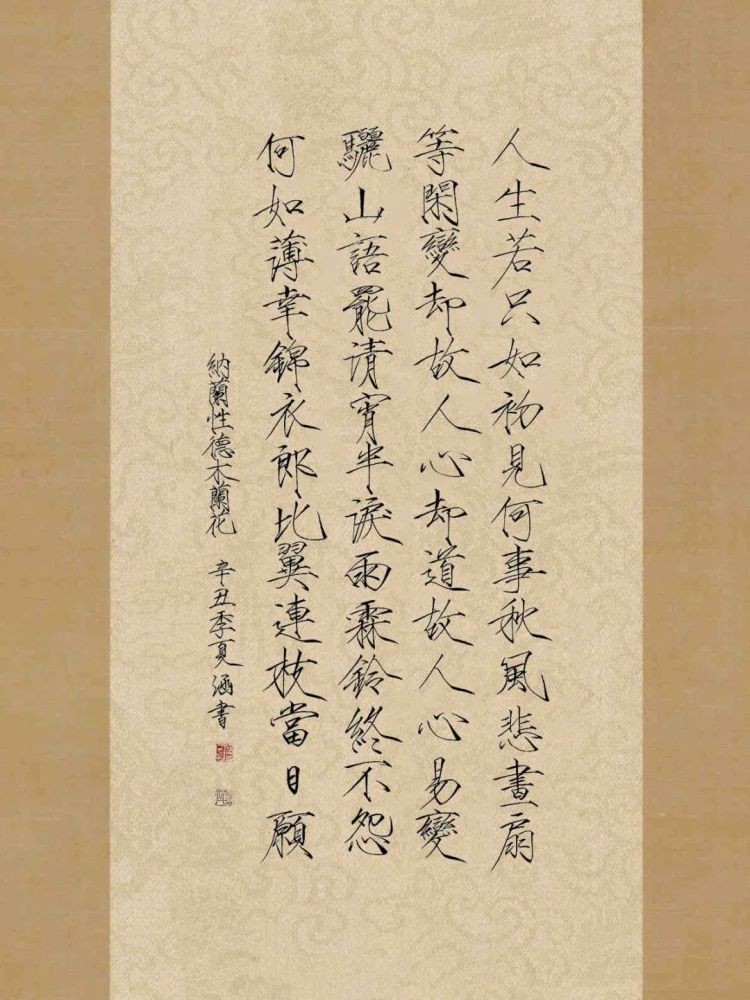 人生若只如初見何事秋風悲畫扇
等閑變却故人心却道故人心易變
驪山語罷清宵半淚雨霖鈴終不怨
何如薄幸錦衣郎比翼連枝當日願
納蘭性德木蘭花 辛丑季夏涵書